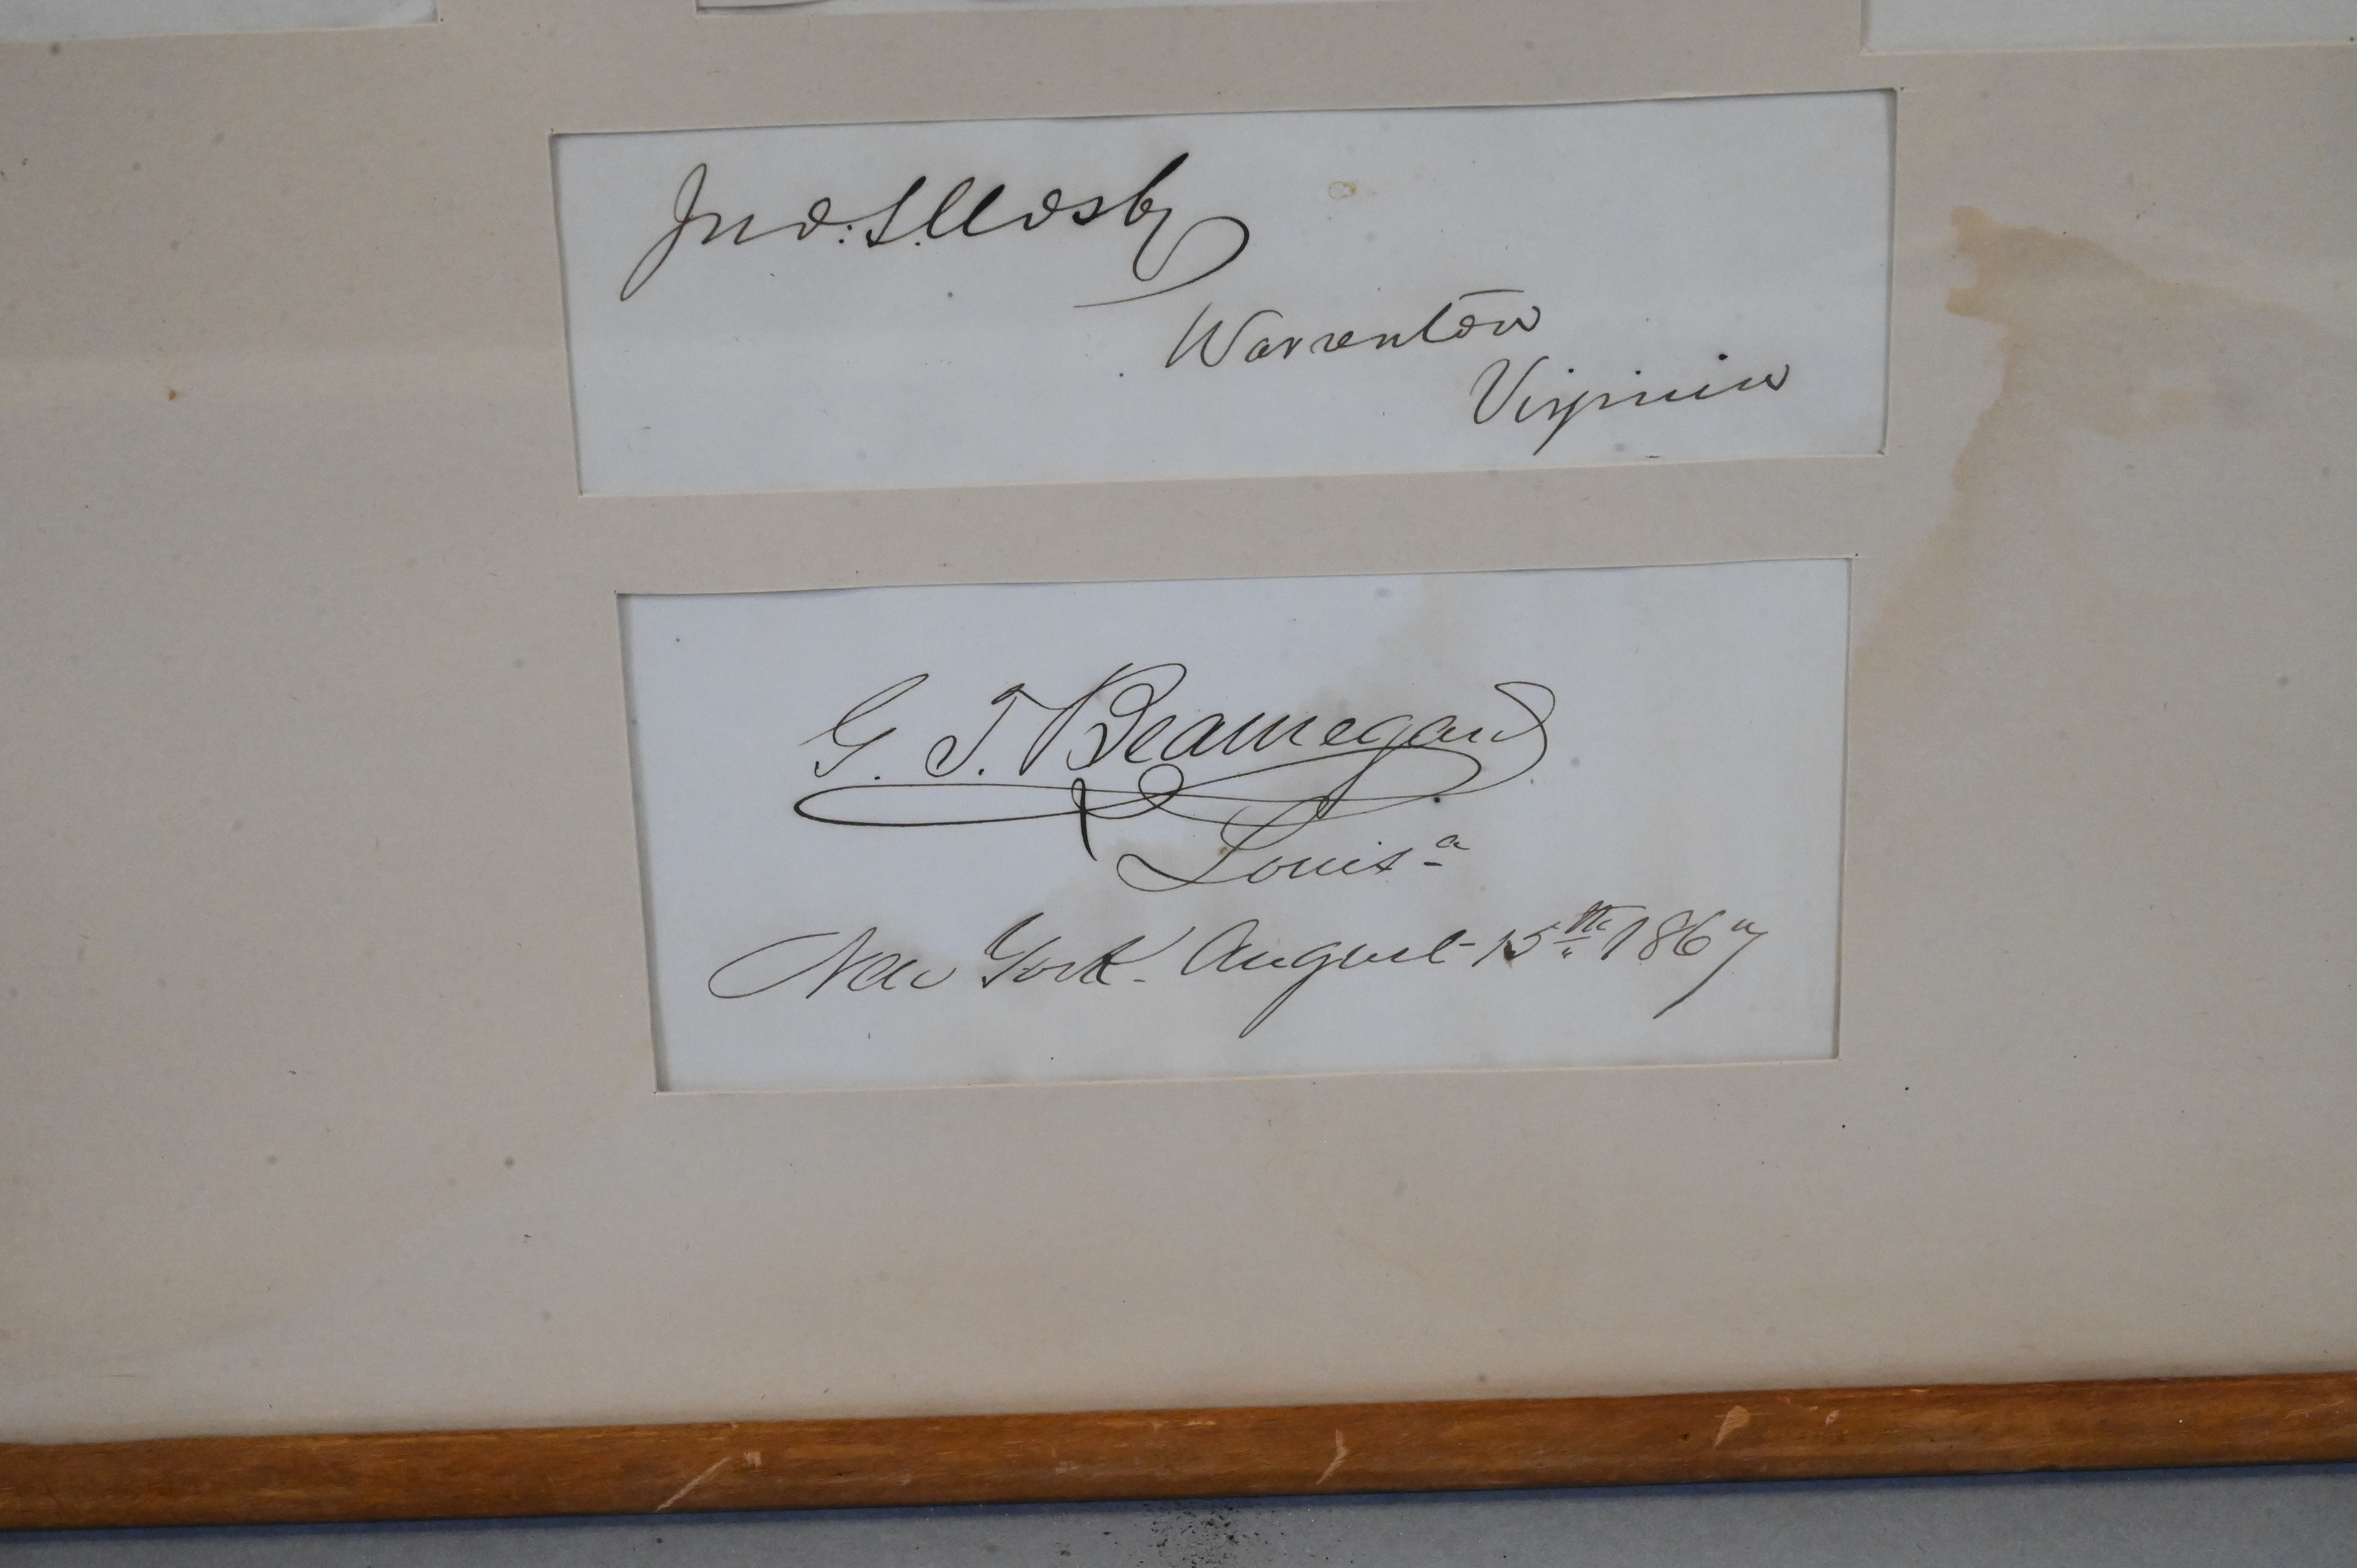 Jno: S. Mosby
Warrenton
Virginia
G. T. Beauregard
Louisa
New York. August 15th 1867